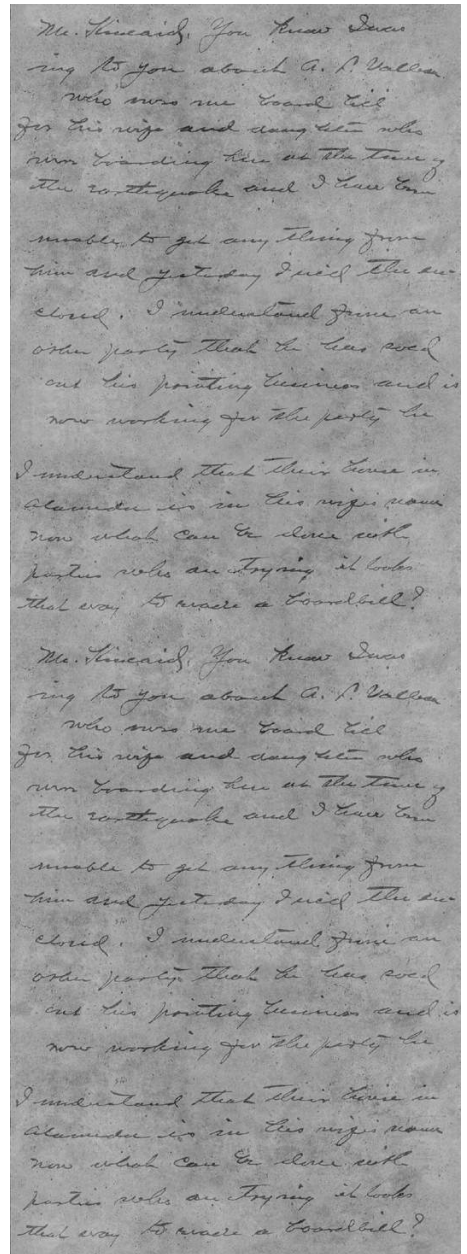 Mr. Kincaid, You know I was
ing to you about A. P. Vallea
who owes me board bill
for his wife and daughter who
were boarding here at the time of
the earthquake and I have been
unable to get any thing from
him and yesterday I rec'd the en-
closed. I understand from an
other party that he has sold
out his printing business and is
now working for the party he
I understand that their house in
Alameda is in his wife's name
now what can be done with
parties who are trying it looks
that way to evade a boardbill?
Mr. Kincaid, You know I was
ing to you about A. P. Vallea
who owes me board bill
for his wife and daughter who
were boarding here at the time of
the earthquake and I have been
unable to get any thing from
him and yesterday I rec'd the en-
closed. I understand from an
other party that he has sold
out his printing business and is
now working for the party he
I understand that their house in
Alameda is in his wife's name
now what can be done with
parties who are trying it looks
that way to evade a boardbill?